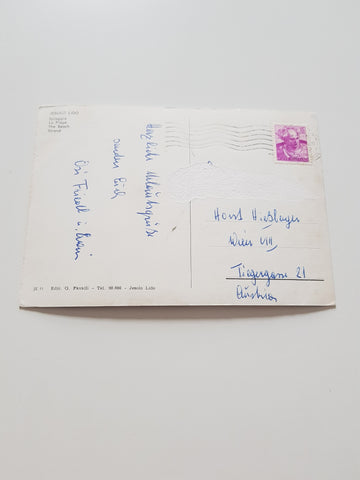 JESOLO LIDO
Spiaggia
La Plage
The Beach
Strand
Herzliche Urlaubsgrüße
senden Euch
Fredl u.
Horst
Wien VIII
Tigergasse 21
Austria
Ediz. G. Pavadi - Tel. - Jesolo Lido